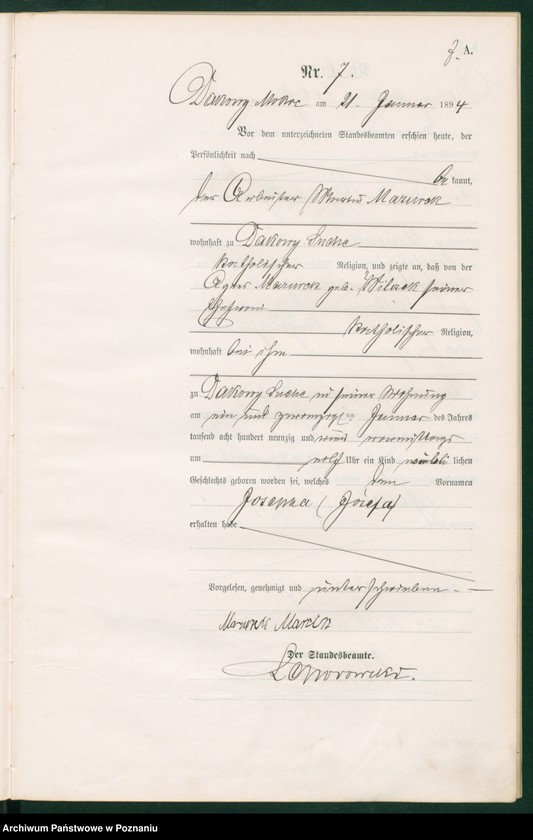 7. A.
Nr. 7.
Dakowy Mokre am 21. Januar 1894
Vor dem unterzeichneten Standesbeamten erschien heute, der
Persönlichkeit nach
be kannt,
der Arbeiter Martin Mazurek
wohnhaft zu Dakowy Suche
katholischer Religion, und zeigte an, daß von der
Agnes Mazurek geb. seiner
Ehefrau
katholischer Religion,
wohnhaft bei ihm
zu Dakowy Suche in seiner Wohnung
am ein und zwanzigsten Januar des Jahres
tausend acht hundert neunzig und vier vormittags
um Uhr ein Kind weib lichen
Geschlechts geboren worden sei, welches den Vornamen
Josepha (Józefa)
erhalten habe
Vorgelesen, genehmigt und unterschrieben.
Mazurek Marcin
Der Standesbeamte.
Archiwum Państwowe w Poznaniu